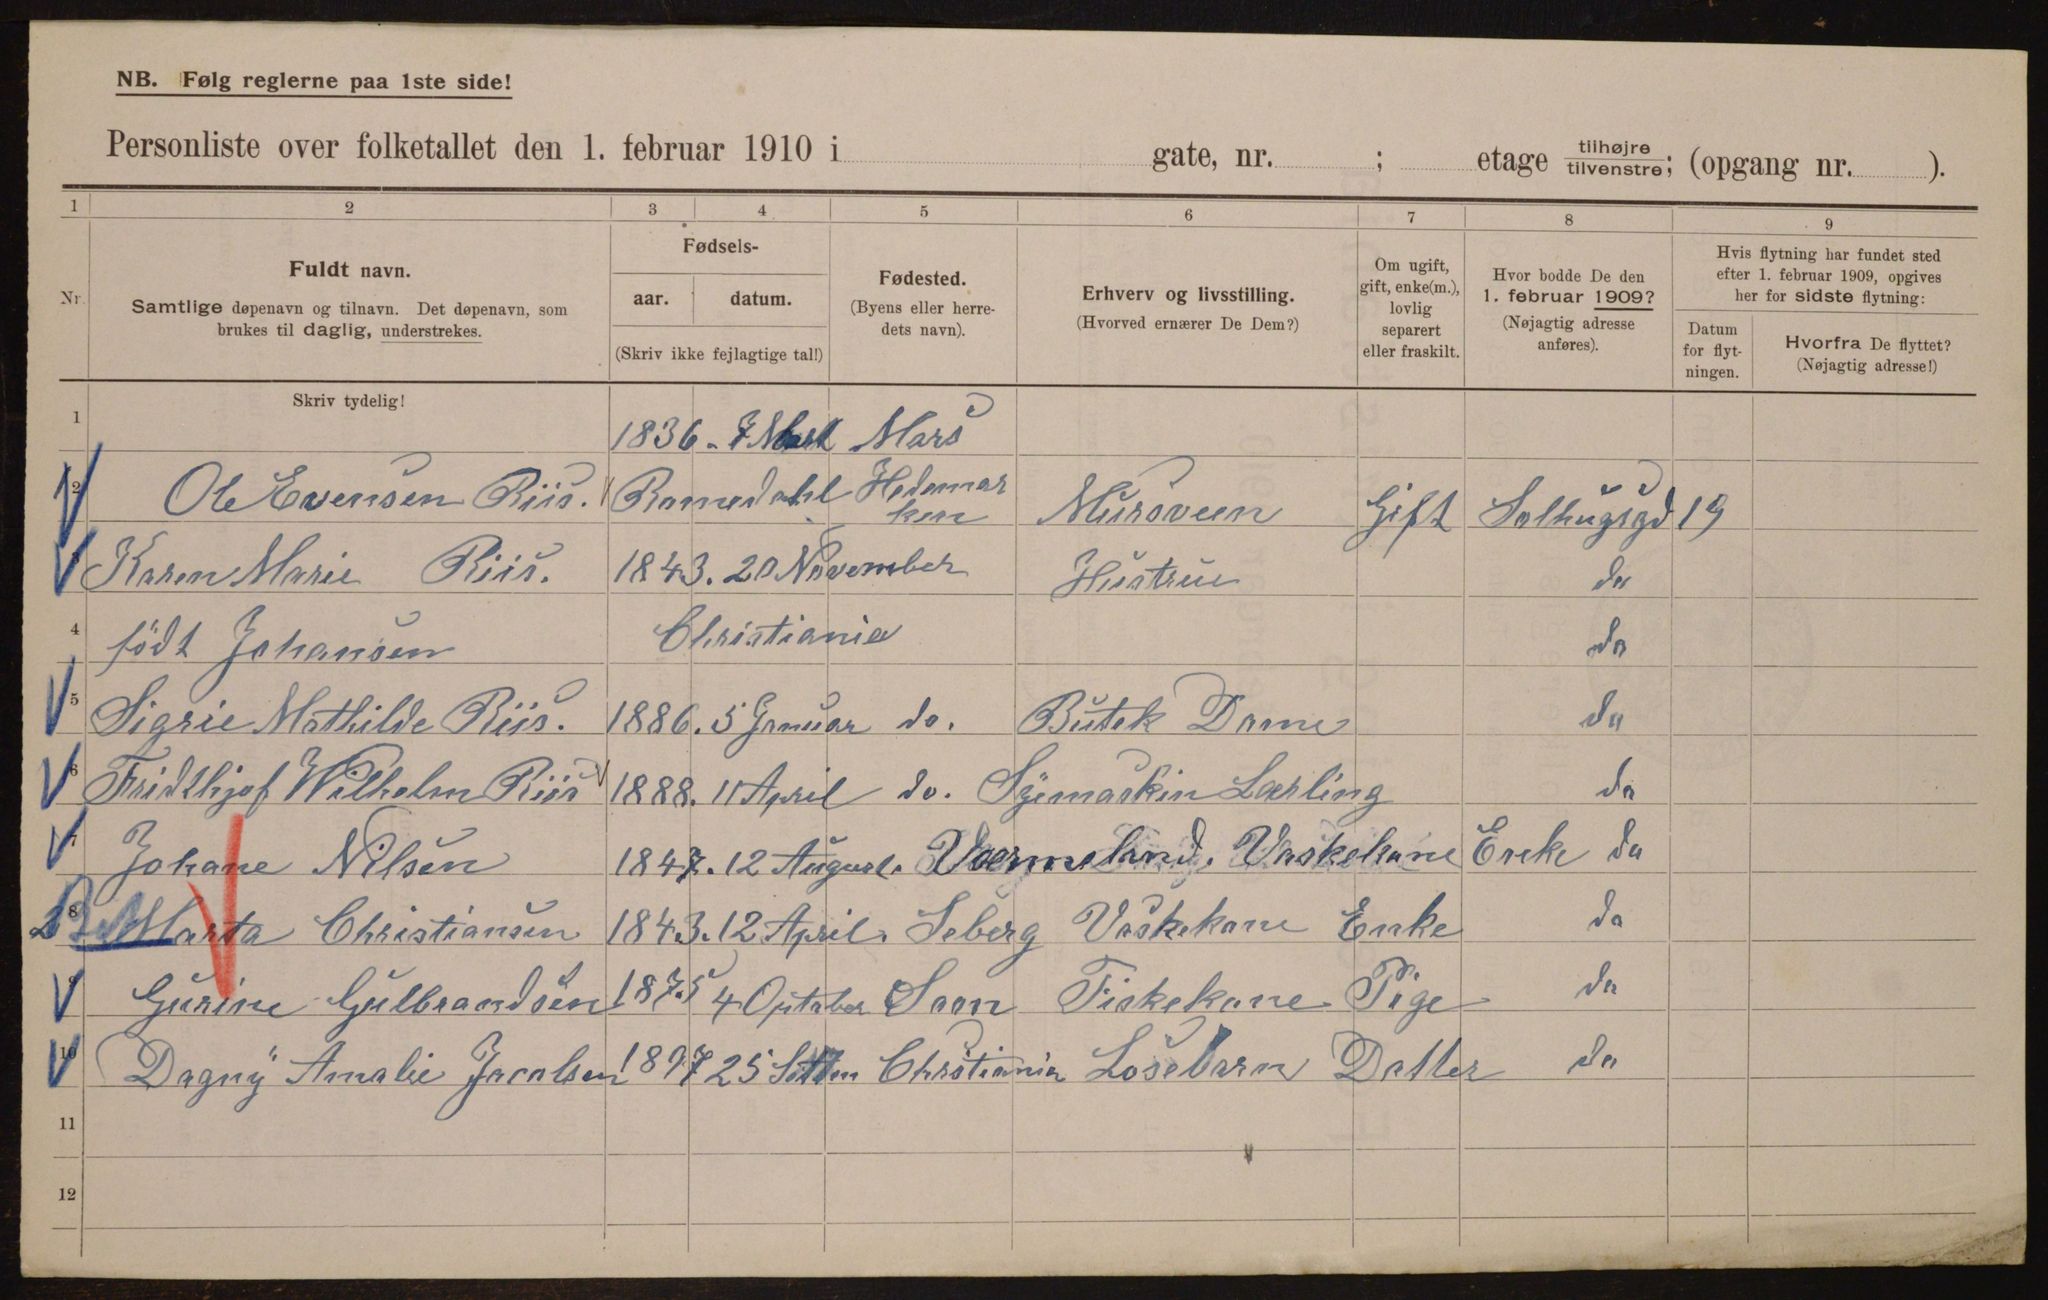 NB. Følg reglerne paa 1ste side!
Personliste over folketallet den 1. februar 1910 i gate, nr. ; etage tilhøjre tilvenstre; (opgang nr. ).
1 2 3 4 5 6 7 8 9
Nr.
Fuldt navn.
Samtlige døpenavn og tilnavn. Det døpenavn, som
brukes til daglig, understrekes.
Skriv tydelig!
Fødsels-
aar. datum.
(Skriv ikke fejlagtige tal!)
Fødested.
(Byens eller herre-
dets navn).
Erhverv og livsstilling.
(Hvorved ernærer De Dem?)
Om ugift,
gift, enke(m.),
lovlig
separert
eller fraskilt.
Hvor bodde De den
1. februar 1909?
(Nøjagtig adresse
anføres).
Hvis flytning har fundet sted
efter 1. februar 1909, opgives
her for sidste flytning:
Datum
for flyt-
ningen.
Hvorfra De flyttet?
(Nøjagtig adresse!)
1 1836. 7 Mars
2 Ole Evensen Riis. Romedahl Hedemar
ken Mursveen Gift Solhugsgd 19
3 Karen Marie Riis. 1843. 20 November Hustrue do
4 födt Johansen Christiania do
5 Sigrie Mathilde Riis. 1886. 5 Januar do. Butek Dame do
6 Fridthjof Wilhelm Riis 1888. 11 April do. Syimaskin Lærling do
7 Johane Nilsen 1847. 12 August. Værmeland. Vaskekone Enke do
8 Marta Christiansen 1843. 12 April. Seberg Vaskekone Enke do
9 Gurine Gulbrandsen 1875 4 Oktober Soon Fiskekone Pige do
10 Dagny Amalie Jacobsen 1897 25 Christiania Losebarn Datter do
11
12